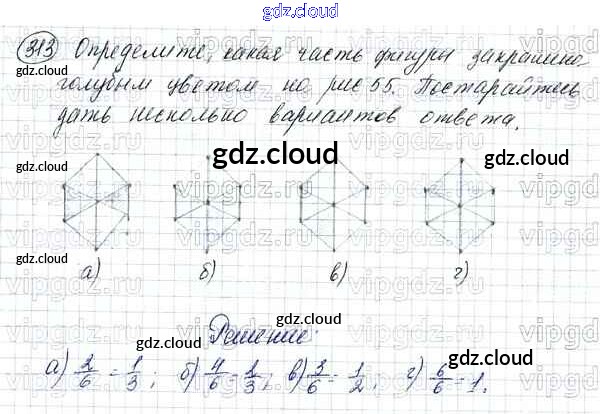 gdz.cloud
313 Определите, какая часть фигуры закрашено
голубым цветом на рис 55. Постарайтесь
дать несколько вариантов ответа.
gdz.cloud
gdz.cloud gdz.cloud
gdz.cloud gdz.cloud
а) б) в) г)
gdz.cloud
gdz.cloud
Решение:
а) 2/6 = 1/3; б) 4/6 = 2/3; в) 3/6 = 1/2; г) 6/6 = 1.
gdz.cloud gdz.cloud